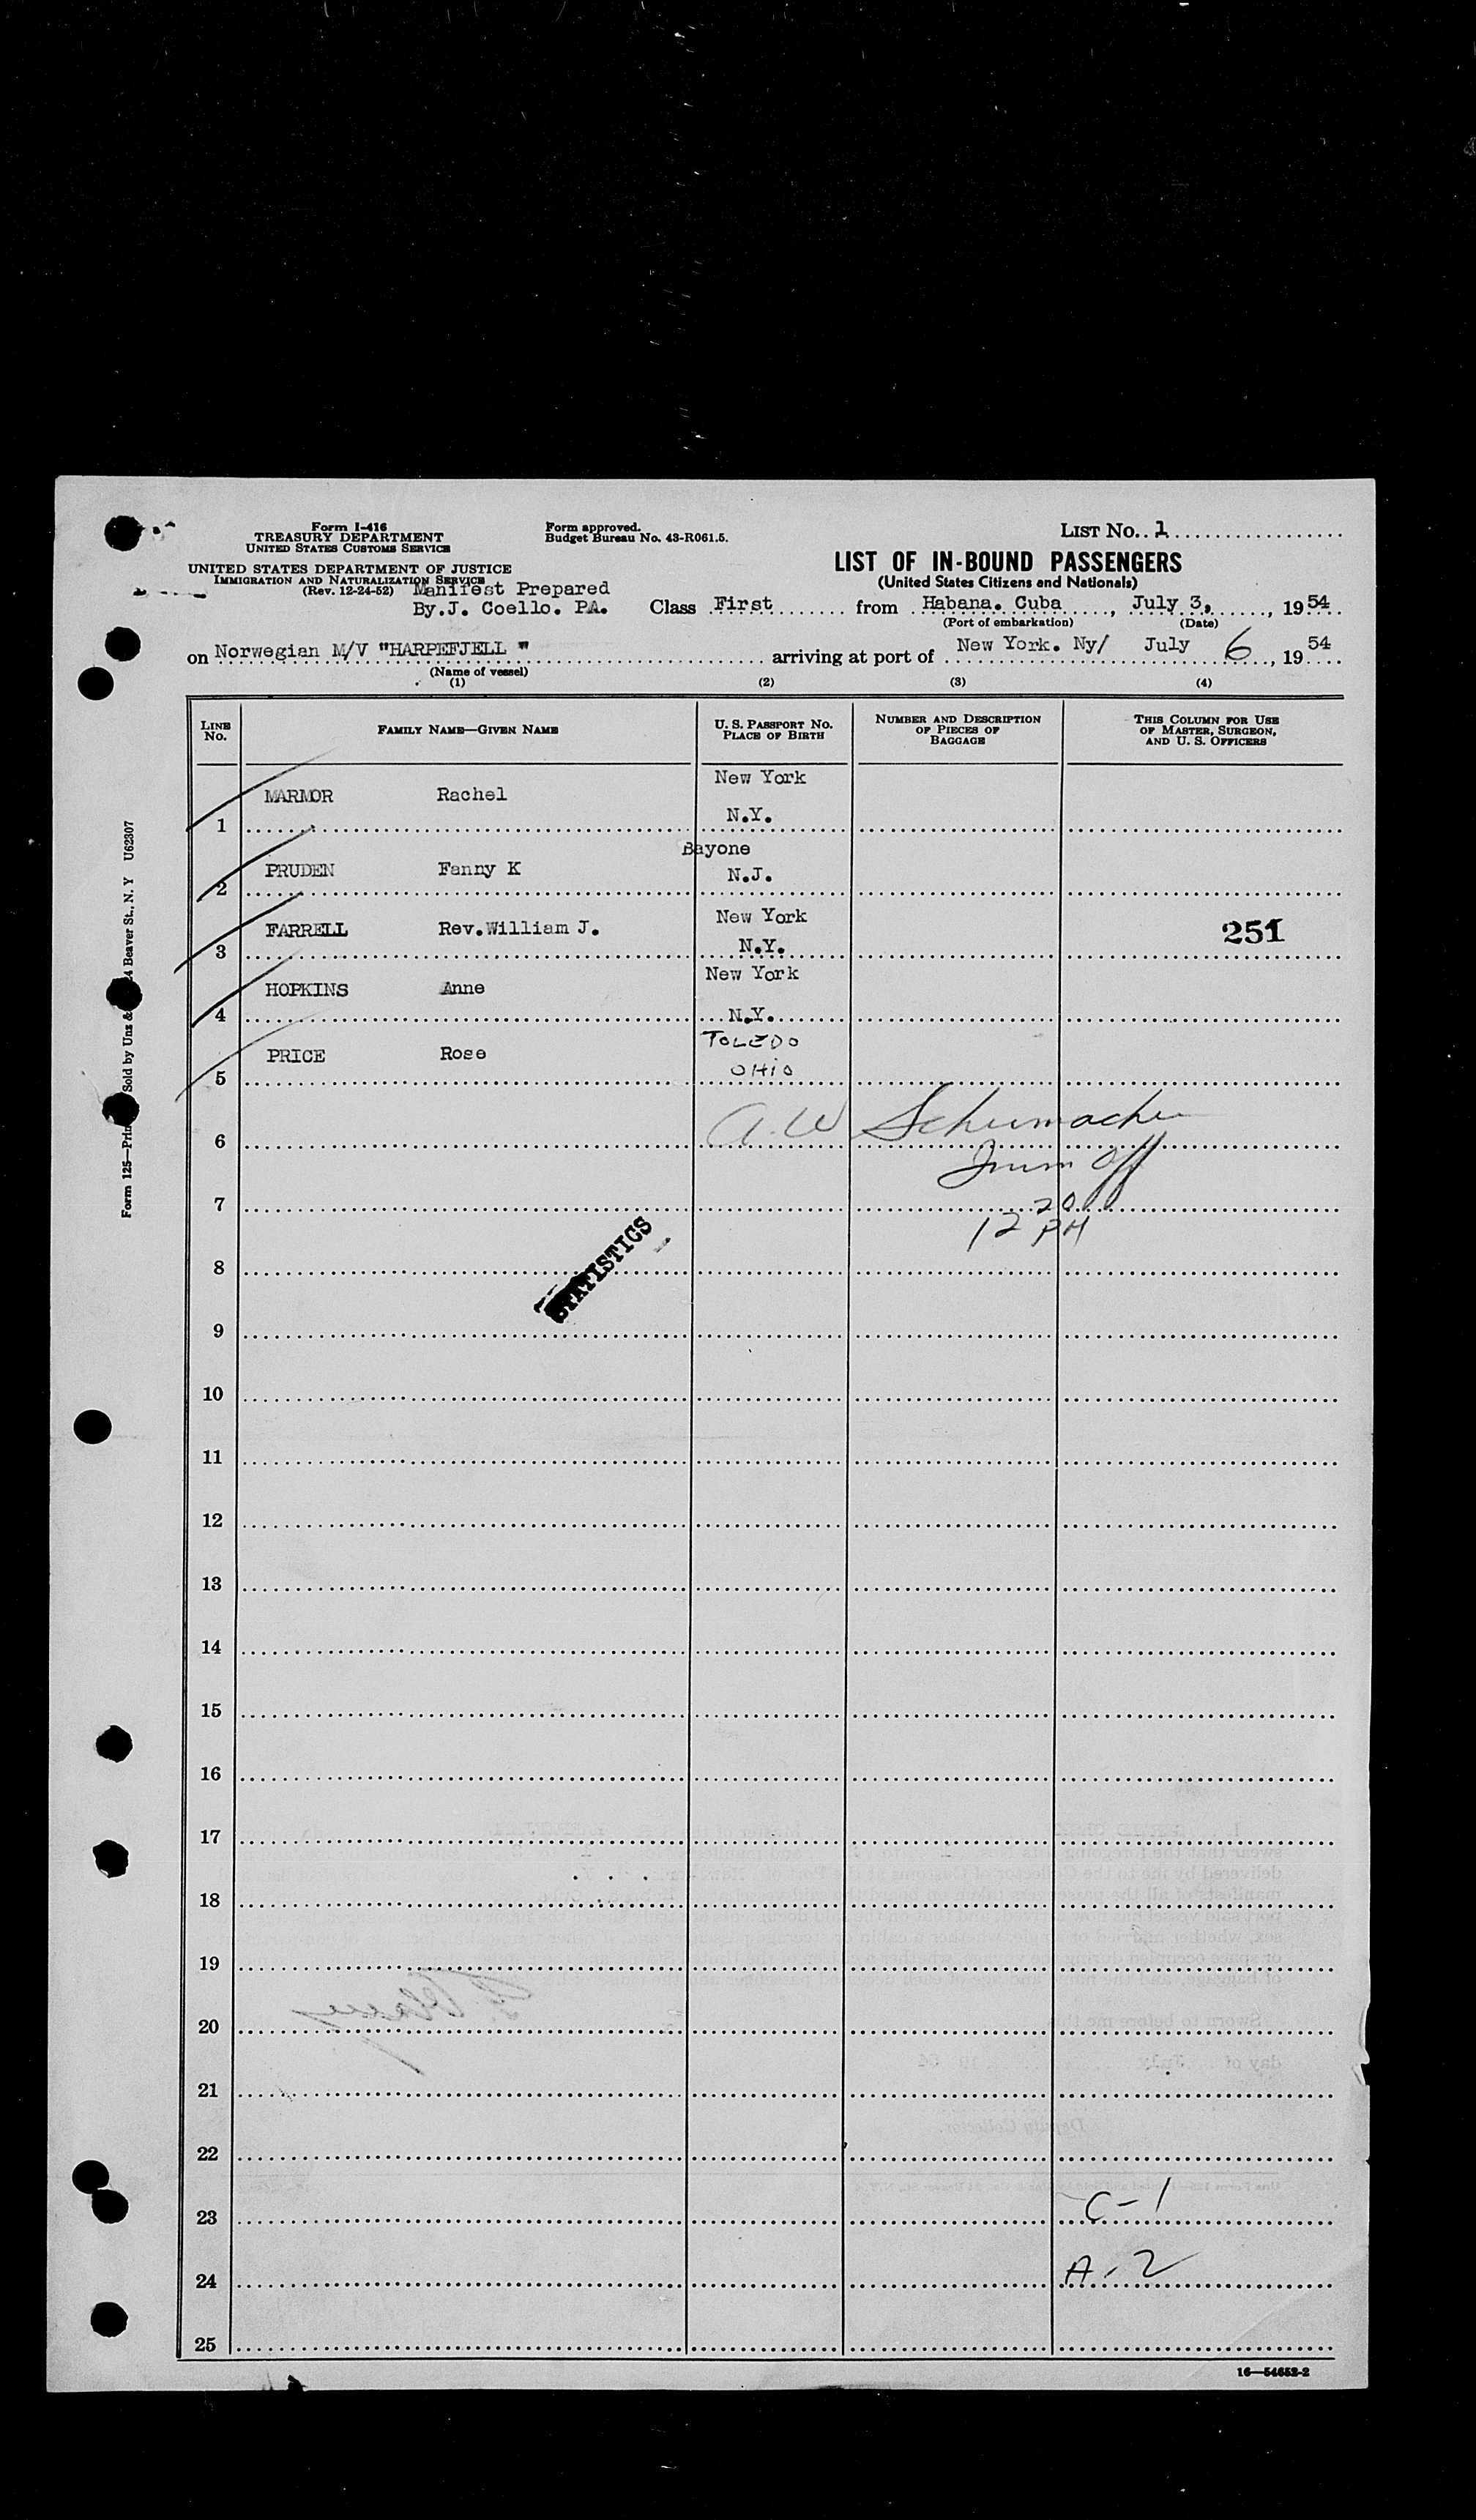 Form I-416
TREASURY DEPARTMENT
UNITED STATES CUSTOMS SERVICE
Form approved.
Budget Bureau No. 43-R061.5.
LIST No. 1
UNITED STATES DEPARTMENT OF JUSTICE
IMMIGRATION AND NATURALIZATION SERVICE
(Rev. 12-24-52)
LIST OF IN-BOUND PASSENGERS
(United States Citizens and Nationals)
Manifest Prepared
By.J. Coello. PA.
Class First from Habana. Cuba, July 3, 1954
(Port of embarkation) (Date)
on Norwegian M/V "HARPEFJELL " arriving at port of New York. Ny/ July 6, 1954
(Name of vessel)
(1) (2) (3) (4)
LINE No.
FAMILY NAME—GIVEN NAME
U. S. PASSPORT NO.
PLACE OF BIRTH
NUMBER AND DESCRIPTION
OF PIECES OF
BAGGAGE
THIS COLUMN FOR USE
OF MASTER, SURGEON,
AND U. S. OFFICERS
1 MARMOR Rachel New York
N.Y.
2 PRUDEN Fanny K Bayone
N.J.
3 FARRELL Rev.William J. New York
N.Y.
251
4 HOPKINS Anne New York
N.Y.
5 PRICE Rose TOLEDO
OHIO
6 A.W Schumacher
Imm Off
7
12 20 PM
8
STATISTICS
9
10
11
12
13
14
15
16
17
18
19
20
21
22
23 C-1
24 A-2
25
16—54652-2
Form 125—Sold by Unz & 24 Beaver St., N. Y U62307